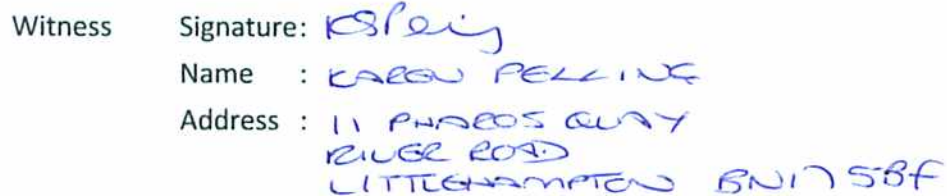 Witness Signature:
Name : KAREN PELLING
Address : 11 PHAROS QUAY
RIVER ROAD
LITTLEHAMPTON BN17 5BF